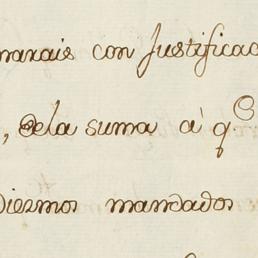 marais con Justificac
, dela suma à q^e
Diezmos mandados